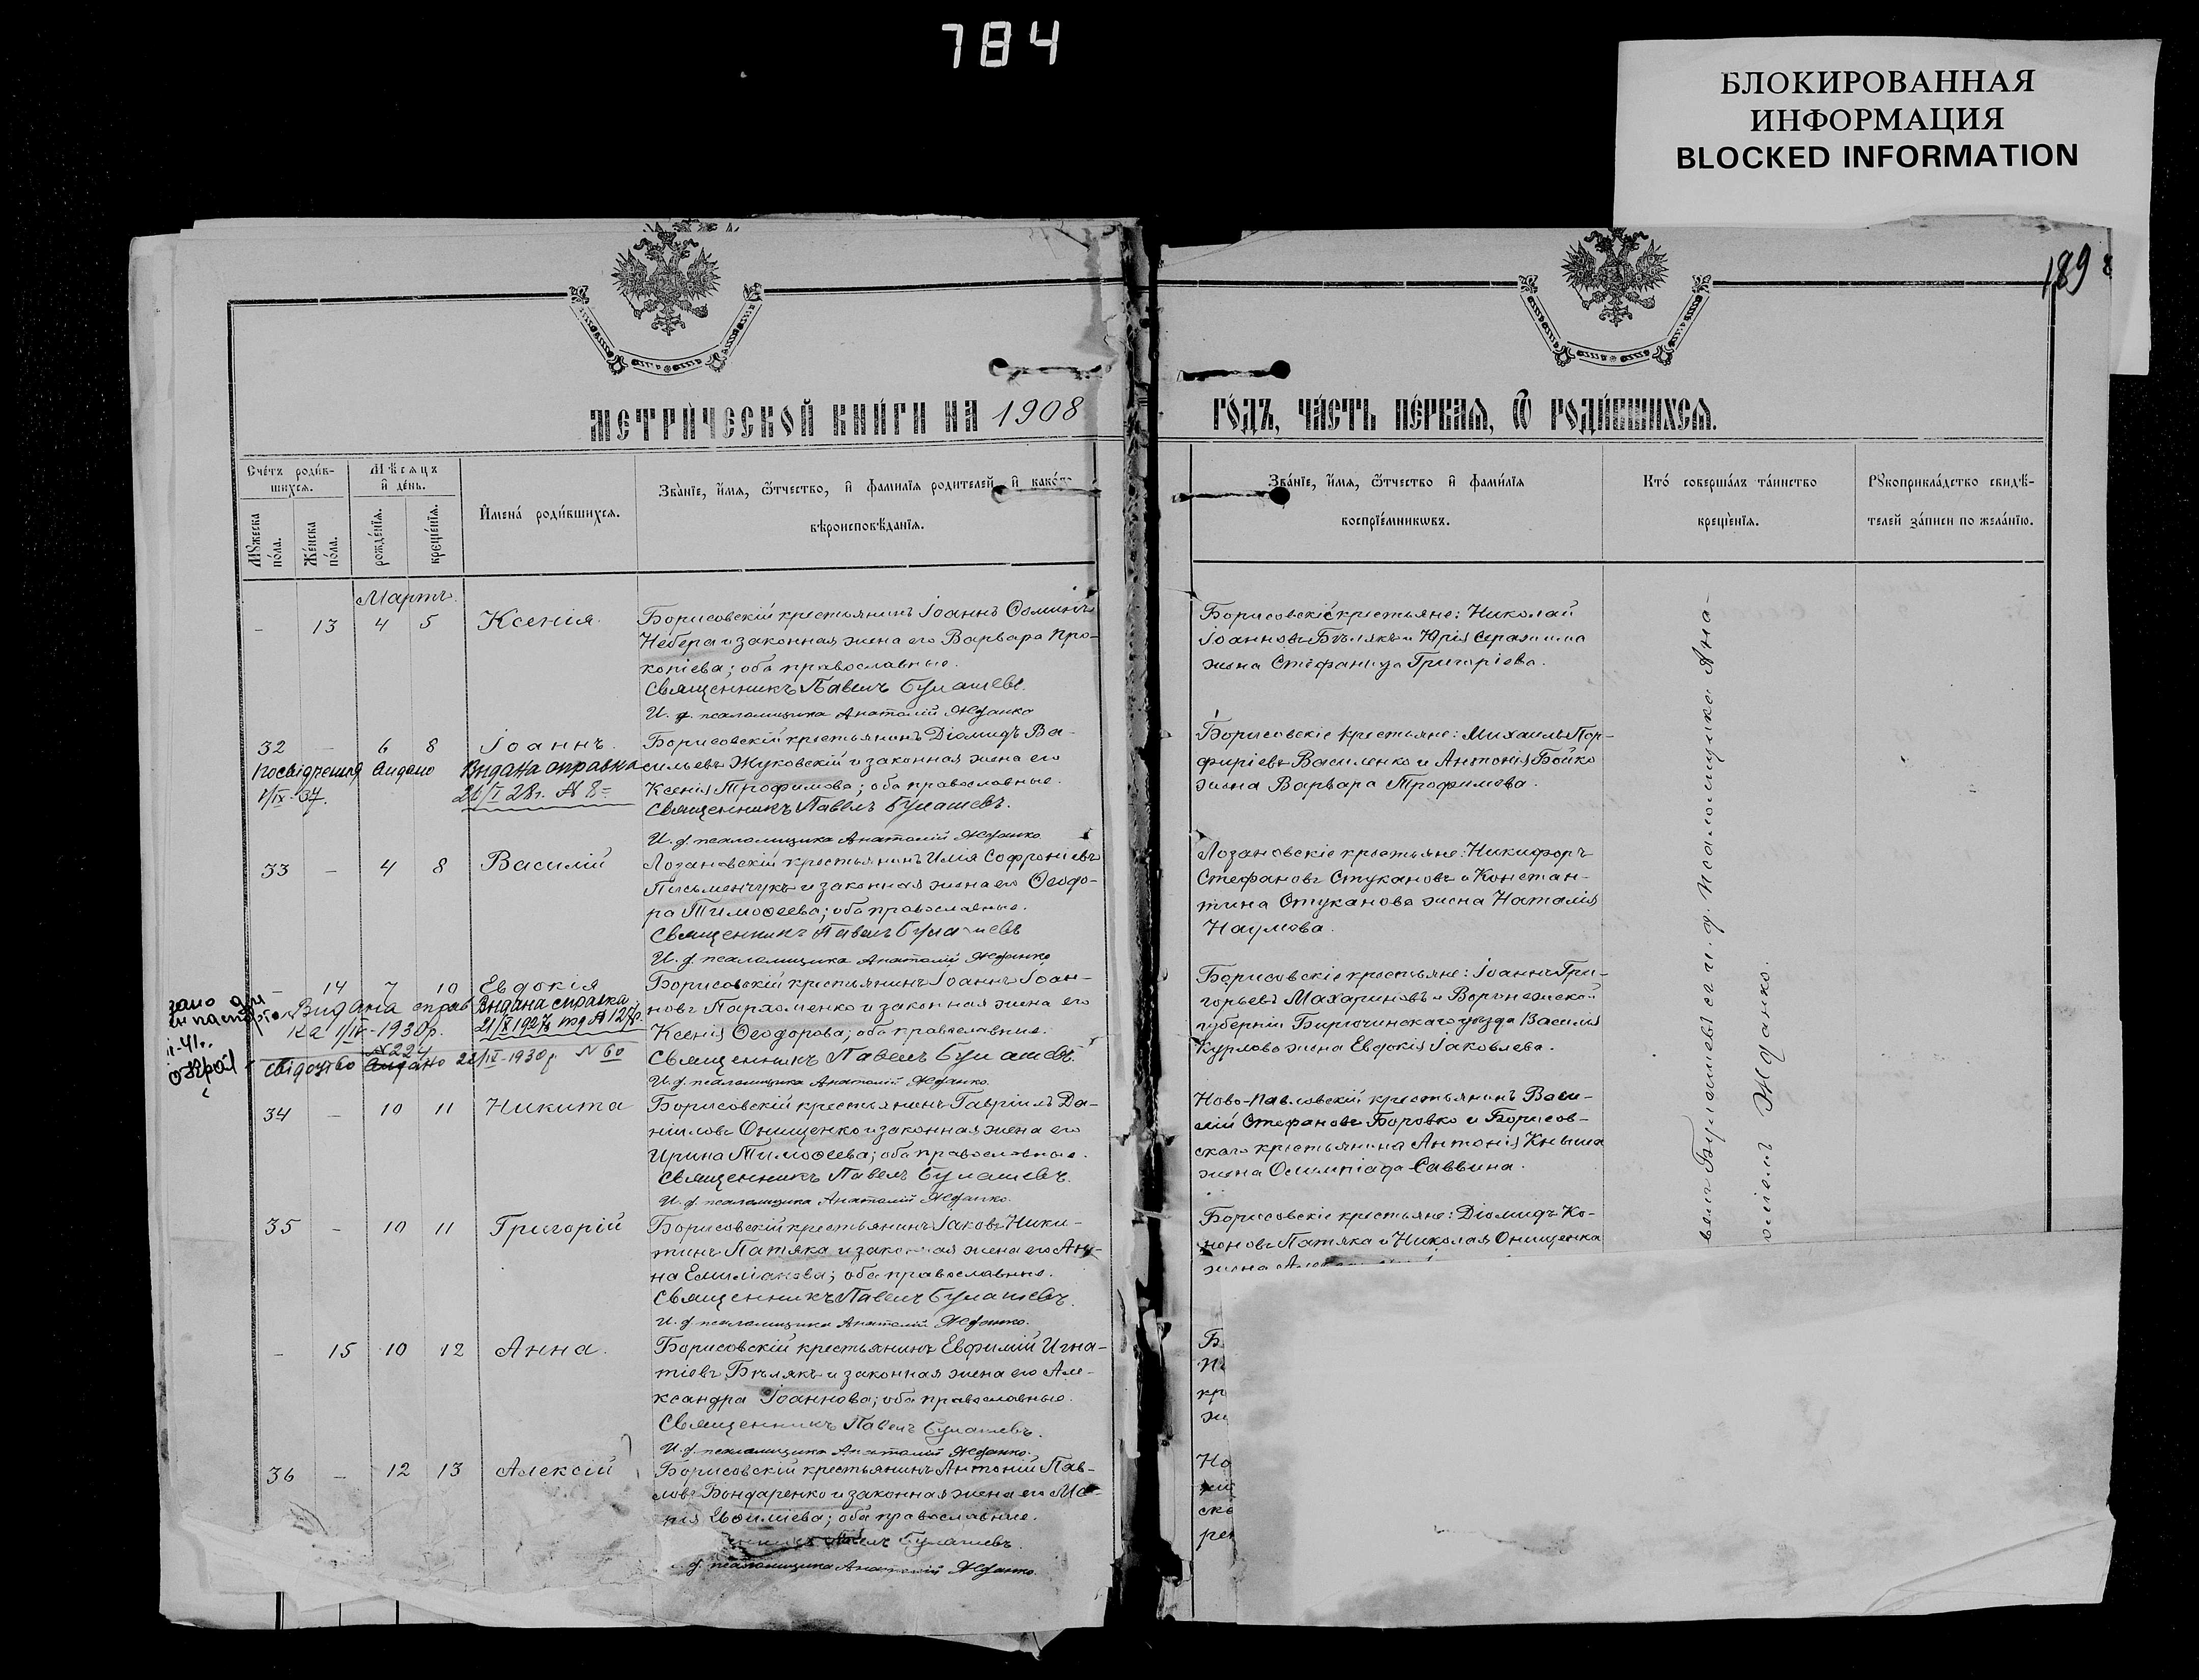 784
БЛОКИРОВАННАЯ
ИНФОРМАЦИЯ
BLOCKED INFORMATION
1898
МЕТРИЧЕСКОЙ КНИГИ НА 1908
ГОДЪ, ЧАСТЬ ПЕРВАЯ, Ѿ РОДИВШИХСЯ.
Счетъ родив-
шихся.
Мѣсяцъ
и день.
Мужеска
пола.
Женска
пола.
рожденія.
крещенія.
Имена родившихся.
Званіе, имя, ѿтчество, и фамилія родителей, и какого
вѣроисповѣданія.
Званіе, имя, ѿтчество и фамилія
воспріемниковъ.
Кто совершалъ таинство
крещенія.
Рукоприкладство свидѣ-
телей записи по желанію.
Мартъ.
- 13 4 5 Ксенія.
Борисовскій крестьянинъ Іоаннъ Ѳоминъ
Небера и законная жена его Варвара Про-
копіева; оба православные.
Священникъ Павелъ Булашевъ.
И. д. псаломщика Анатолій Жданко
Борисовскіе крестьяне: Николай
Іоанновъ Бѣлякъ и Юрія
жена Стефанида Григоріева.
32 - 6 8 Іоаннъ.
Видана справка
21/I 28г. № 8=
видано
1/IX-37.
Борисовскій крестьянинъ Діомидъ Ва-
сильевъ Жуковскій и законная жена его
Ксенія Трофимова; оба православные.
Священникъ Павелъ Булашевъ.
И. д. псаломщика Анатолій Жданко
Борисовскіе крестьяне: Михаилъ Пор-
фиріевъ Василенко и Антонія Бойко
жена Варвара Трофимова.
33 - 4 8 Василій
Лозановскій крестьянинъ Илія Софроніевъ
Письменчукъ и законная жена его Ѳеодо-
ра Тимоѳеева; оба православные.
Священникъ Павелъ Булашевъ
И. д. псаломщика Анатолій Жданко
Лозановскіе крестьяне: Никифоръ
Стефановъ Стукановъ и Констан-
тина Стуканова жена Наталія
Наумова.
- 14 7 10 Евдокія
Видана справ
ка 1/IV-1930р.
№224
Видана справка
21/X 1927г
свідоцтво видано 22/IV-1930р №60
Борисовскій крестьянинъ Іоаннъ Іоан-
новъ Пархоменко и законная жена его
Ксенія Ѳеодорова; оба православные.
Священникъ Павелъ Булашевъ.
И. д. псаломщика Анатолій Жданко.
Борисовскіе крестьяне: Іоаннъ Гри-
горьевъ Махариновъ и Воронежской
губерніи Бирючинскаго уѣзда Василія
Курлова жена Евдокія Іаковлева.
34 - 10 11 Никита
Борисовскій крестьянинъ Гавріилъ Да-
ніиловъ Онищенко и законная жена его
Ирина Тимоѳеева; оба православные.
Священникъ Павелъ Булашевъ.
И. д. псаломщика Анатолій Жданко.
Ново-Павловскій крестьянинъ Васи-
лій Стефановъ Боровко и Борисов-
скаго крестьянина Антонія Кныша
жена Олимпіада Саввина.
35 - 10 11 Григорій
Борисовскій крестьянинъ Іаковъ Ники-
тинъ Патяка и законная жена его Ан-
на Емиліанова; оба православные.
Священникъ Павелъ Булашевъ.
И. д. псаломщика Анатолій Жданко.
Борисовскіе крестьяне: Діомидъ Ко-
ноновъ Патяка и Николая Онищенка
жена
- 15 10 12 Анна.
Борисовскій крестьянинъ Евфимій Игна-
тіевъ Бѣлякъ и законная жена его Але-
ксандра Іоаннова; оба православные.
Священникъ Павелъ Булашевъ.
И. д. псаломщика Анатолій Жданко.
36 - 12 13 Алексій
Борисовскій крестьянинъ Антоній Пав-
ловъ Бондаренко и законная жена его Ма-
рія оба православные.
Павелъ Булашевъ.
д. псаломщика Анатолій Жданко.
велъ Булашевъ и и. д. псаломщика Ана-
толій Жданко.